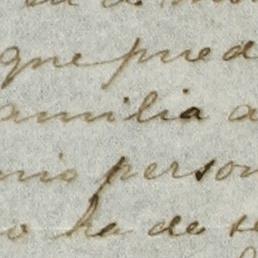 que pued
amilia a
nio person
o ha de se